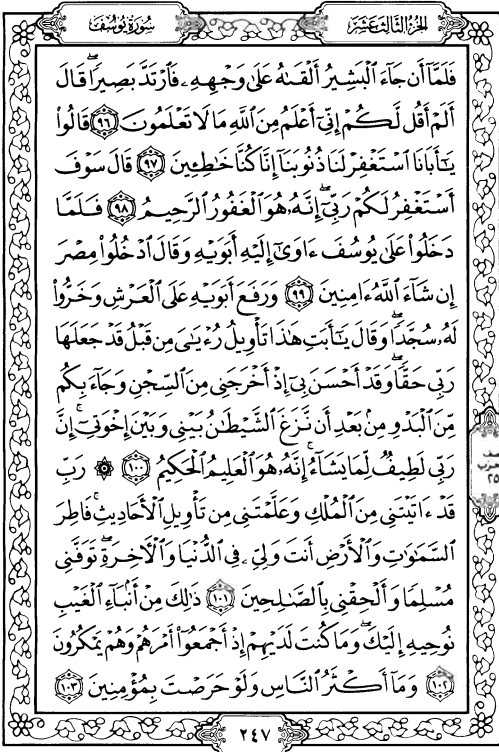 سُورَةُ يُوسُفَ
الجُزءُ الثَّالِثَ عَشَرَ
فَلَمَّآ أَن جَآءَ ٱلْبَشِيرُ أَلْقَىٰهُ عَلَىٰ وَجْهِهِۦ فَٱرْتَدَّ بَصِيرًاۖ قَالَ
أَلَمْ أَقُل لَّكُمْ إِنِّىٓ أَعْلَمُ مِنَ ٱللَّهِ مَا لَا تَعْلَمُونَ ٩٦ قَالُوا۟
يَٰٓأَبَانَا ٱسْتَغْفِرْ لَنَا ذُنُوبَنَآ إِنَّا كُنَّا خَٰطِـِٔينَ ٩٧ قَالَ سَوْفَ
أَسْتَغْفِرُ لَكُمْ رَبِّىٓۖ إِنَّهُۥ هُوَ ٱلْغَفُورُ ٱلرَّحِيمُ ٩٨ فَلَمَّا
دَخَلُوا۟ عَلَىٰ يُوسُفَ ءَاوَىٰٓ إِلَيْهِ أَبَوَيْهِ وَقَالَ ٱدْخُلُوا۟ مِصْرَ
إِن شَآءَ ٱللَّهُ ءَامِنِينَ ٩٩ وَرَفَعَ أَبَوَيْهِ عَلَى ٱلْعَرْشِ وَخَرُّوا۟
لَهُۥ سُجَّدًاۖ وَقَالَ يَٰٓأَبَتِ هَٰذَا تَأْوِيلُ رُءْيَٰىَ مِن قَبْلُ قَدْ جَعَلَهَا
رَبِّى حَقًّاۖ وَقَدْ أَحْسَنَ بِىٓ إِذْ أَخْرَجَنِى مِنَ ٱلسِّجْنِ وَجَآءَ بِكُم
مِّنَ ٱلْبَدْوِ مِنۢ بَعْدِ أَن نَّزَغَ ٱلشَّيْطَٰنُ بَيْنِى وَبَيْنَ إِخْوَتِىٓۚ إِنَّ
رَبِّى لَطِيفٌ لِّمَا يَشَآءُۚ إِنَّهُۥ هُوَ ٱلْعَلِيمُ ٱلْحَكِيمُ ١٠٠ ۞ رَبِّ
قَدْ ءَاتَيْتَنِى مِنَ ٱلْمُلْكِ وَعَلَّمْتَنِى مِن تَأْوِيلِ ٱلْأَحَادِيثِۚ فَاطِرَ
ٱلسَّمَٰوَٰتِ وَٱلْأَرْضِ أَنتَ وَلِىِّۦ فِى ٱلدُّنْيَا وَٱلْءَاخِرَةِۖ تَوَفَّنِى
مُسْلِمًا وَأَلْحِقْنِى بِٱلصَّٰلِحِينَ ١٠١ ذَٰلِكَ مِنْ أَنۢبَآءِ ٱلْغَيْبِ
نُوحِيهِ إِلَيْكَۖ وَمَا كُنتَ لَدَيْهِمْ إِذْ أَجْمَعُوٓا۟ أَمْرَهُمْ وَهُمْ يَمْكُرُونَ
١٠٢ وَمَآ أَكْثَرُ ٱلنَّاسِ وَلَوْ حَرَصْتَ بِمُؤْمِنِينَ ١٠٣
٢٤٧